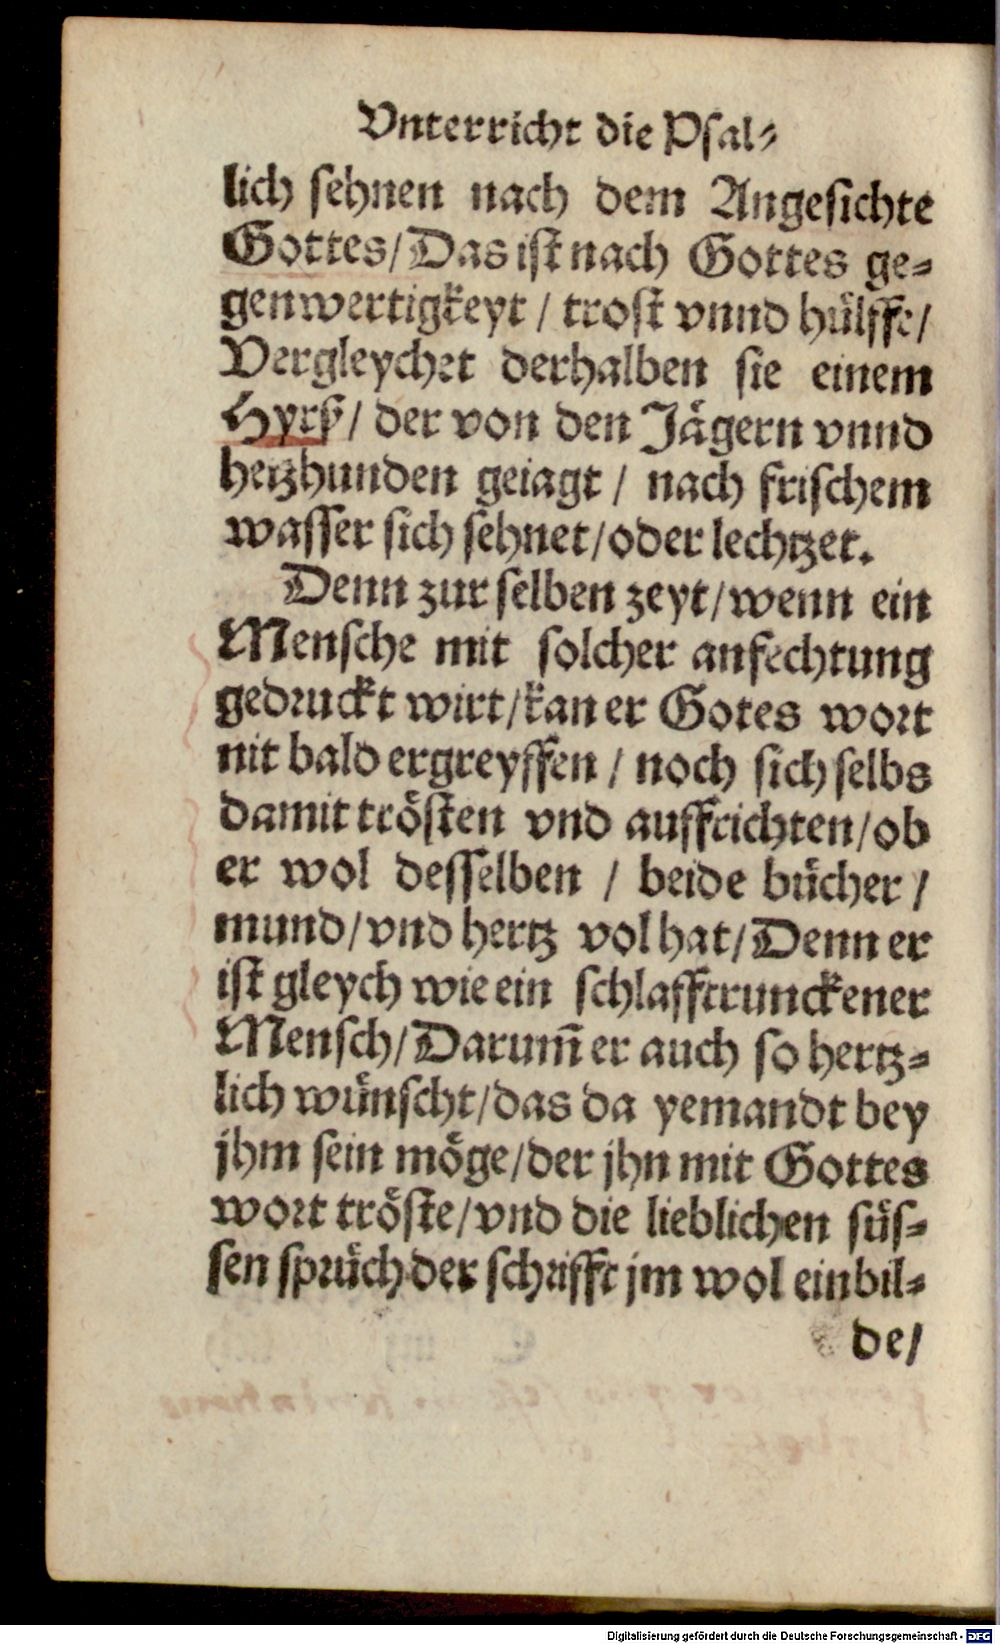 Vnterricht die Psal⸗
lich sehnen nach dem Angesichte
Gottes/Das ist nach Gottes ge⸗
genwertigkeyt / trost vnnd hülffe/
Vergleychet derhalben sie einem
Hyrß/ der von den Jägern vnnd
hetzhunden geiagt / nach frischem
wasser sich sehnet/oder lechtzet.
Denn zur selben zeyt/wenn ein
Mensche mit solcher anfechtung
gedruckt wirt/kan er Gotes wort
nit bald ergreyffen / noch sich selbs
damit trösten vnd auffrichten/ob
er wol desselben / beide bücher /
mund/vnd hertz vol hat/Denn er
ist gleych wie ein schlafftrunckener
Mensch/Darum̄ er auch so hertz⸗
lich wünscht/das da yemandt bey
jhm sein möge/der jhn mit Gottes
wort tröste/vnd die lieblichen süs⸗
sen sprüch der schrifft jm wol einbil⸗
de/
Digitalisierung gefördert durch die Deutsche Forschungsgemeinschaft - DFG